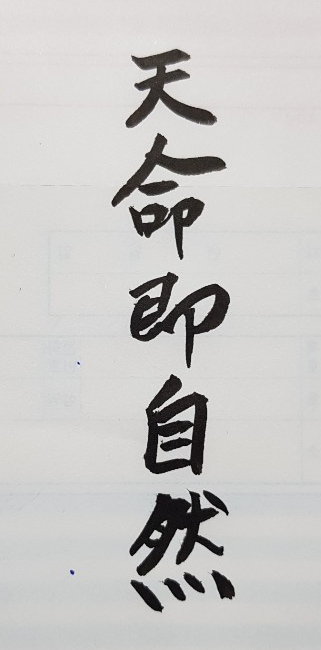 天命即自然